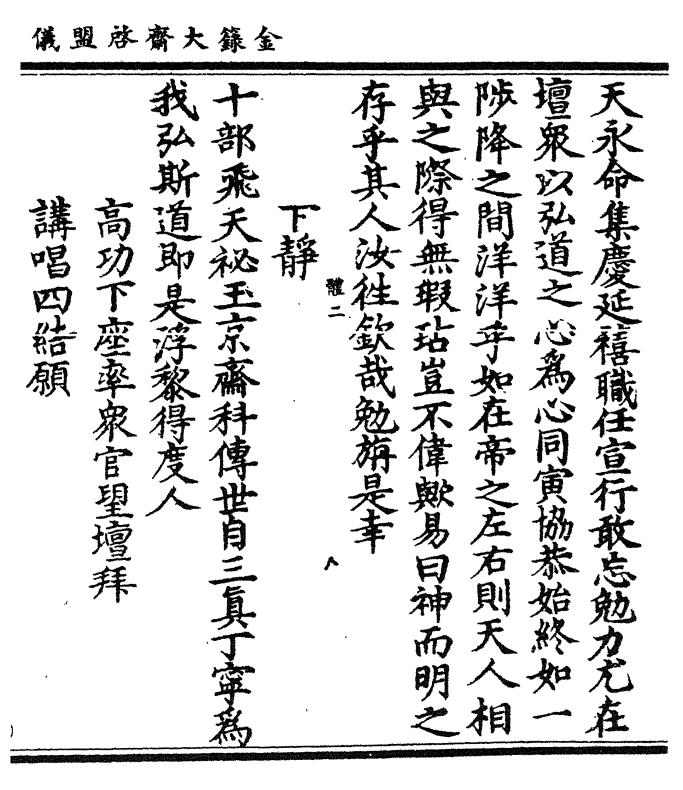 金籙大齋啓盟儀
天永命集慶延禧職任宣行敢忘勉力尤在
壇眾以弘道之心為心同寅協恭始終如一
陟降之間洋洋乎如在帝之左右則天人相
與之際得無瑕玷豈不偉歟易曰神而明之
存乎其人汝徃欽哉勉旃是幸
體二
下靜
十部飛天祕玉京齋科傳世自三真丁寧為
我弘斯道即是浮黎得度人
高功下座率眾官望壇拜
講唱四結願